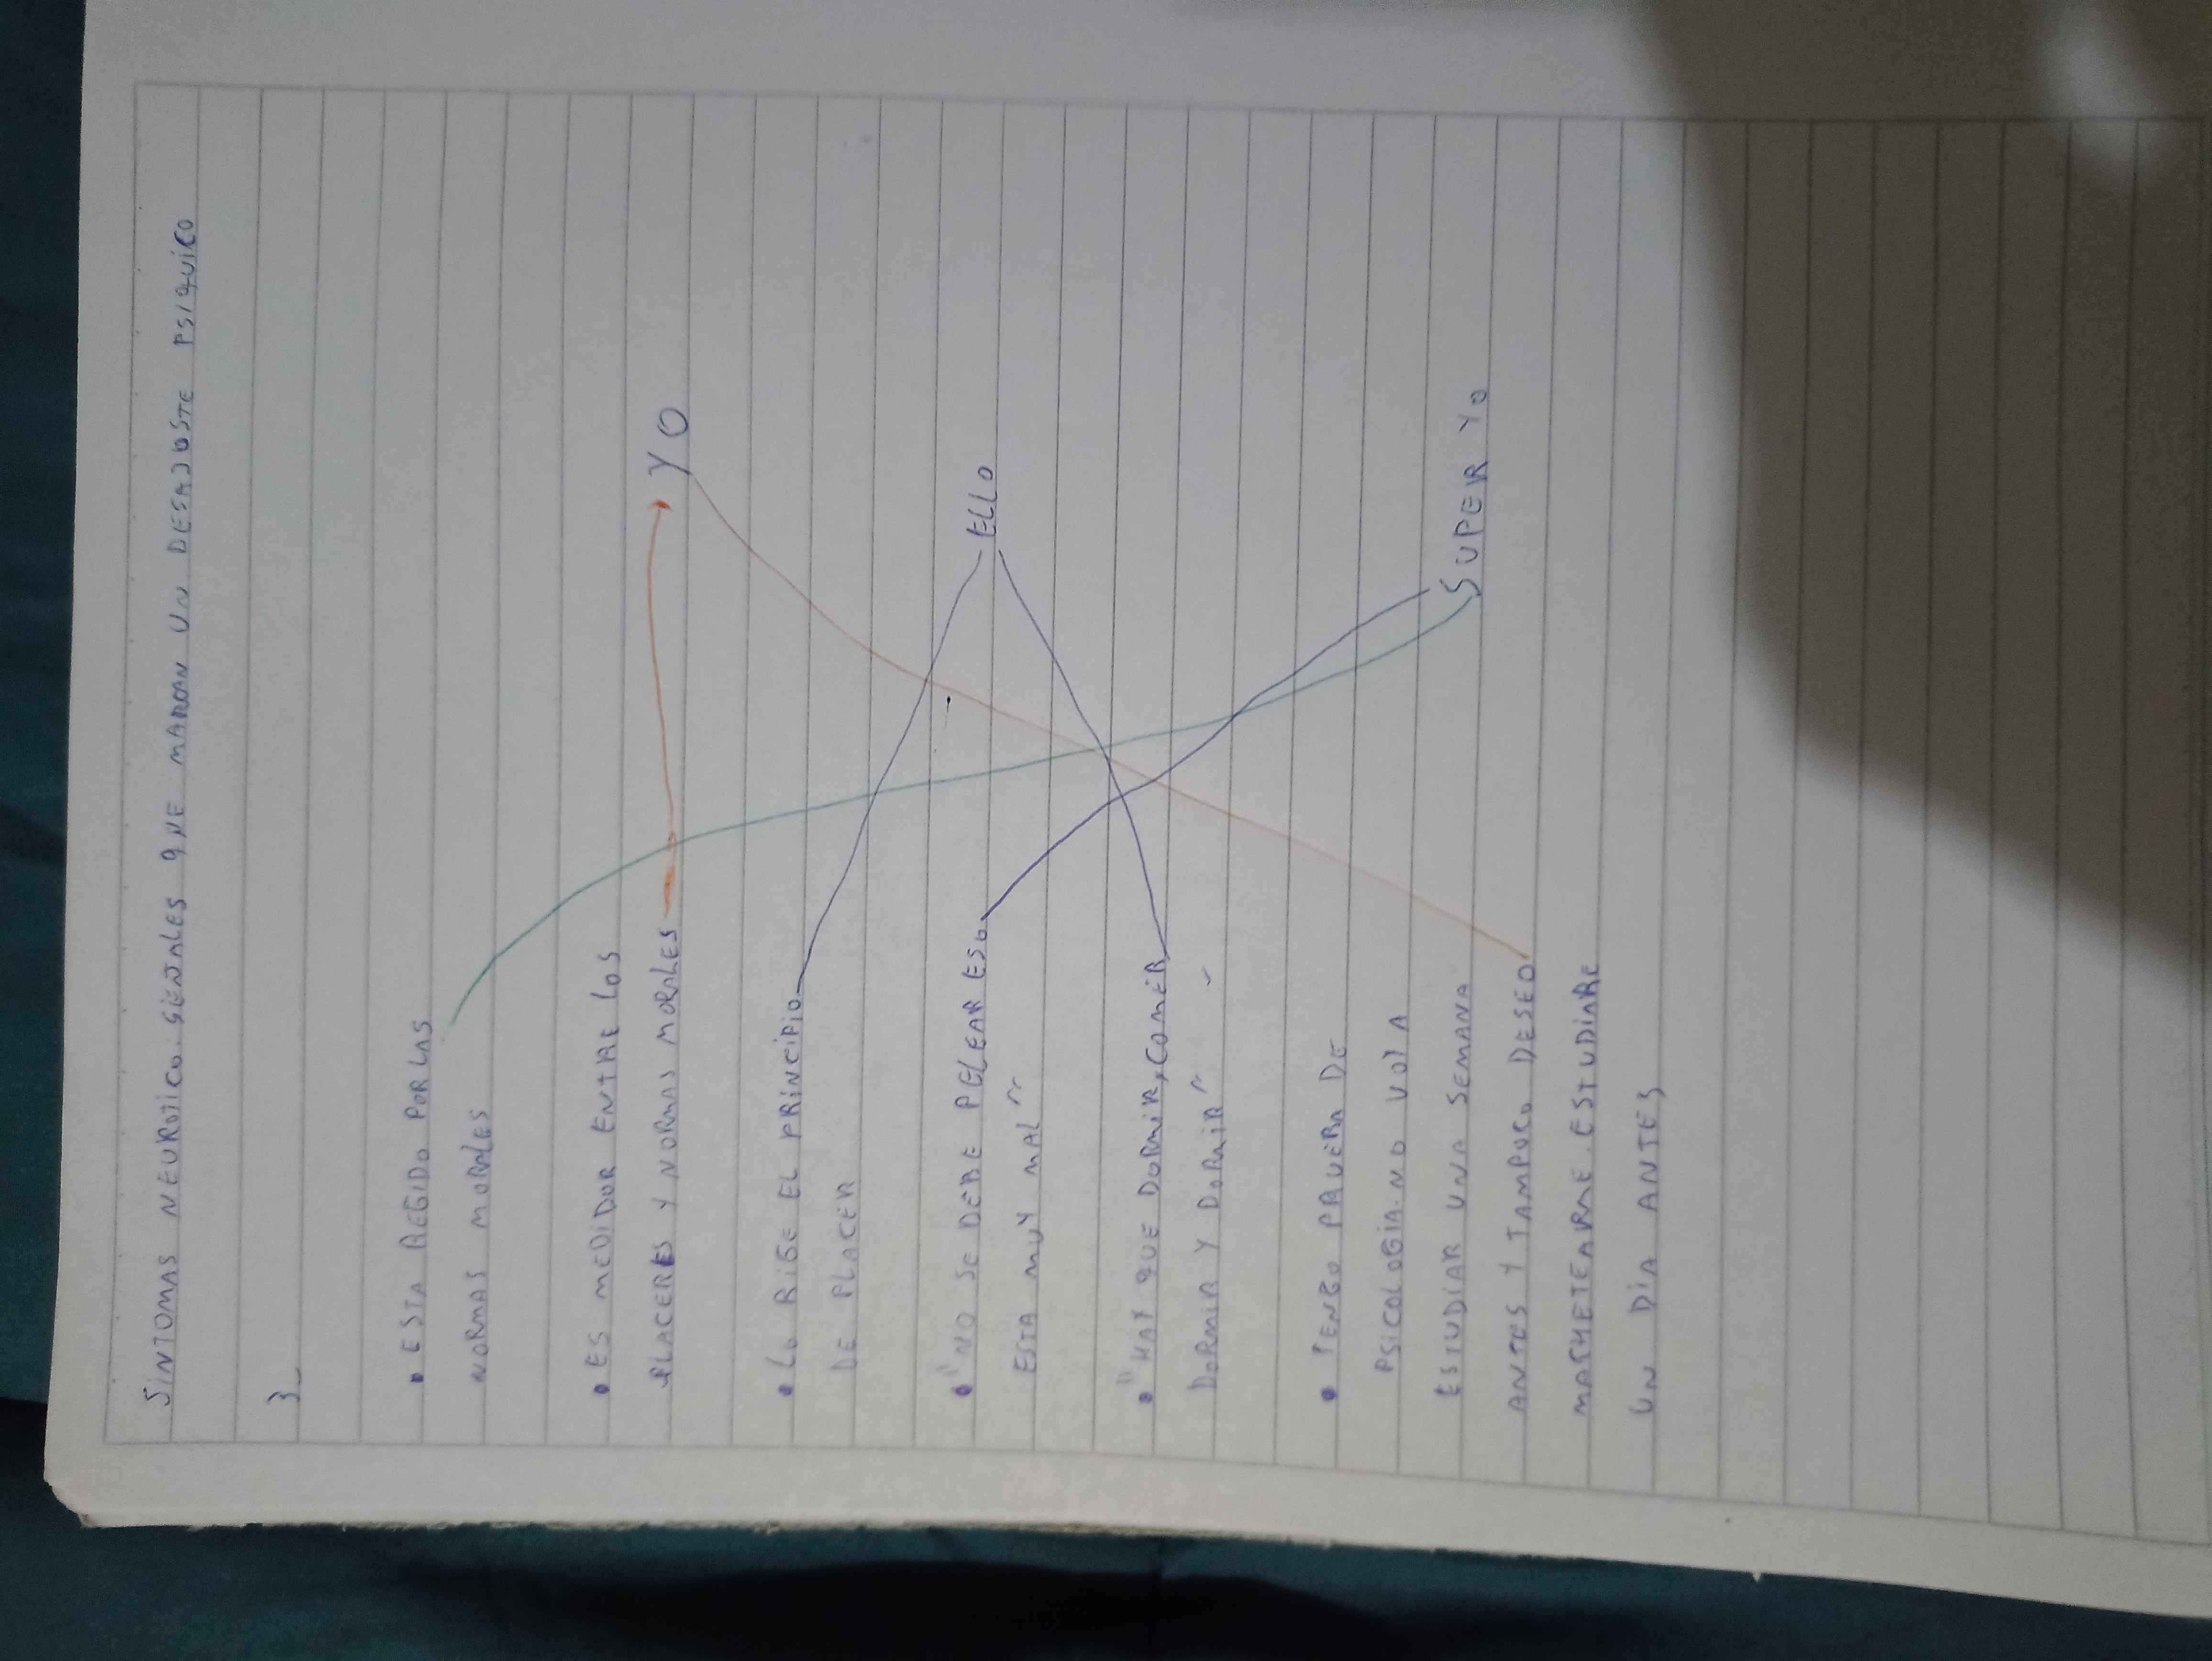 SINTOMAS NEUROTICO. SEÑALES QUE MARCAN UN DESAJUSTE PSIQUICO
3_
• ESTA REGIDO POR LAS
NORMAS MORALES
• ES MEDIDOR ENTRE LOS
PLACERES Y NORMAS MORALES
YO
• LO RIGE EL PRINCIPIO
DE PLACER
ELLO
• "NO SE DEBE PELEAR ESO
ESTA MUY MAL"
• "HAY QUE DORMIR, COMER
DORMIR Y DORMIR"
• TENGO PRUEBA DE
PSICOLOGIA. NO VOY A
ESTUDIAR UNA SEMANA
SUPER YO
ANTES Y TAMPOCO DESEO
MACHETEARME. ESTUDIARE
UN DÍA ANTES